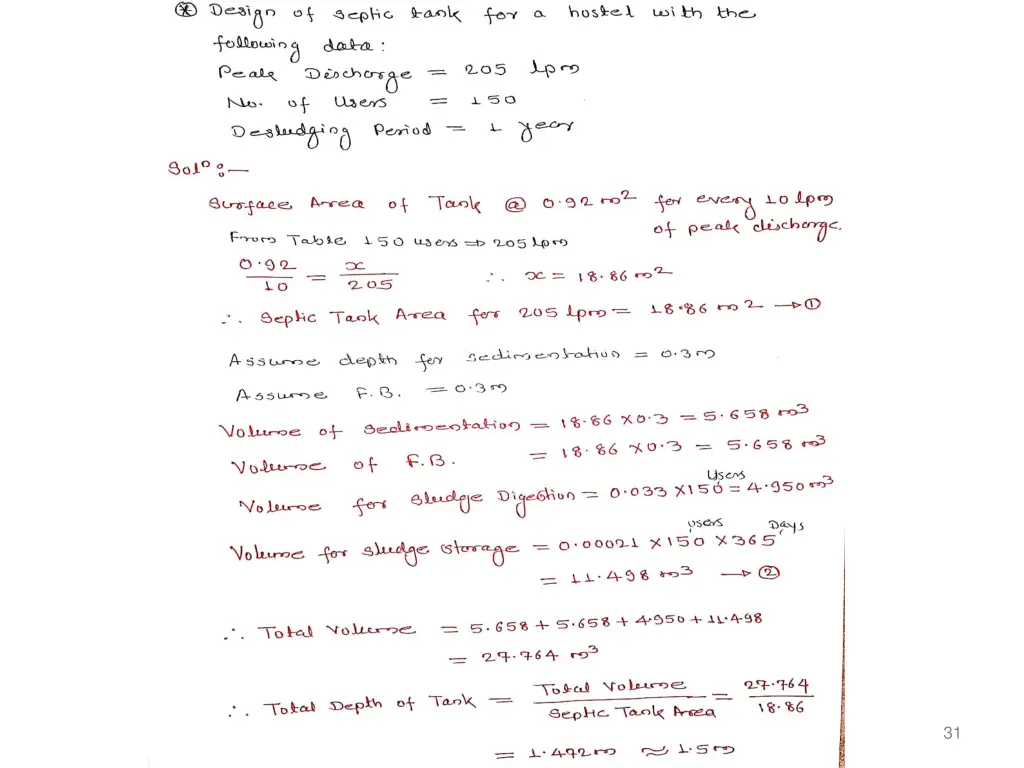 ⊛ Design of septic tank for a hostel with the
following data:
Peak Discharge = 205 lpm
No. of Users = 150
Desludging Period = 1 year
Solⁿ:—
Surface Area of Tank @ 0.92 m² for every 10 lpm
of peak discharge.
From Table 150 users ⇒ 205 lpm
0.92/10 = x/205 ∴ x = 18.86 m²
∴ Septic Tank Area for 205 lpm = 18.86 m² → ①
Assume depth for sedimentation = 0.3 m
Assume F.B. = 0.3 m
Volume of Sedimentation = 18.86 × 0.3 = 5.658 m³
Volume of F.B. = 18.86 × 0.3 = 5.658 m³
Users
Volume for Sludge Digestion = 0.033 × 150 = 4.950 m³
users Days
Volume for sludge storage = 0.00021 × 150 × 365
= 11.498 m³ → ②
∴ Total Volume = 5.658 + 5.658 + 4.950 + 11.498
= 27.764 m³
∴ Total Depth of Tank = Total Volume/Septic Tank Area = 27.764/18.86
= 1.472 m ≈ 1.5 m
31